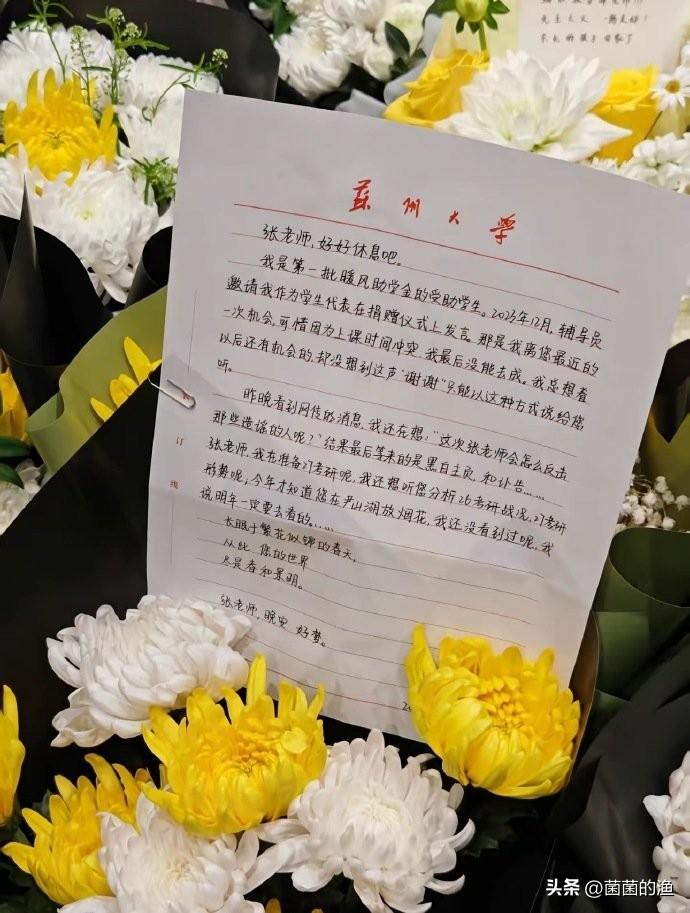 先生大义 一路走好！
苏州大学
张老师，好好休息吧。
我是第一批暖风助学金的受助学生。2023年12月，辅导员
邀请我作为学生代表在捐赠仪式上发言。那是我离您最近的
一次机会，可惜因为上课时间冲突，我最后没能去成。我总想着
以后还有机会的，却没想到这声“谢谢”只能以这种方式说给您
听。
昨晚看到网传的消息，我还在想：“这次张老师会怎么反击
那些造谣的人呢？”结果最后等来的是黑白主页，和讣告……
张老师，我在准备27考研呢，我还想听您分析26考研战况、27考研
形势呢；今年才知道您在尹山湖放烟花，我还没看到过呢，我
说明年一定要去看的……
长眠于繁花似锦的春天，
从此 您的世界
尽是春和景明。
张老师，晚安 好梦。
订
线
头条 @菌菌的渔